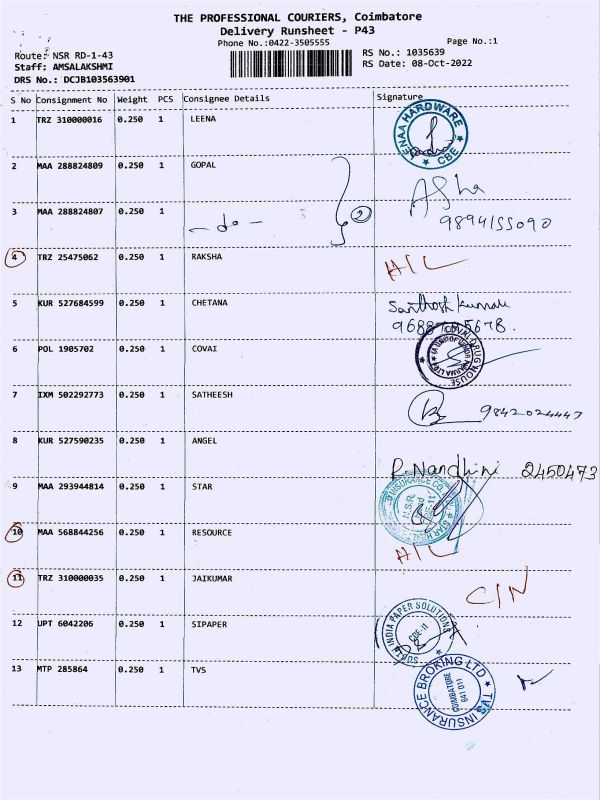 THE PROFESSIONAL COURIERS, Coimbatore
Delivery Runsheet - P43
Phone No.:0422-3505555
Page No.:1
Route: NSR RD-1-43
RS No.: 1035639
Staff: AMSALAKSHMI
RS Date: 08-Oct-2022
DRS No.: DCJB103563901
S No Consignment No Weight PCS Consignee Details Signature
1 TRZ 310000016 0.250 1 LEENA
HARDWARE
★ CBE ★
2 MAA 288824809 0.250 1 GOPAL
Asha
3 MAA 288824807 0.250 1 - do - 2
9894155090
4 TRZ 25475062 0.250 1 RAKSHA H/L
5 KUR 527684599 0.250 1 CHETANA
6 POL 1905702 0.250 1 COVAI
COVAI DRUG HOUSE
7 IXM 502292773 0.250 1 SATHEESH
9842024447
8 KUR 527590235 0.250 1 ANGEL
R. Nandhini 2450473
9 MAA 293944814 0.250 1 STAR
INSURANCE CO.
N.S.R.
10 MAA 568844256 0.250 1 RESOURCE H/L
11 TRZ 310000035 0.250 1 JAIKUMAR C/N
12 UPT 6042206 0.250 1 SIPAPER
SOUTH INDIA PAPER SOLUTIONS
CBE-11
13 MTP 285864 0.250 1 TVS
TVS INSURANCE BROKING LTD
COIMBATORE
641 011